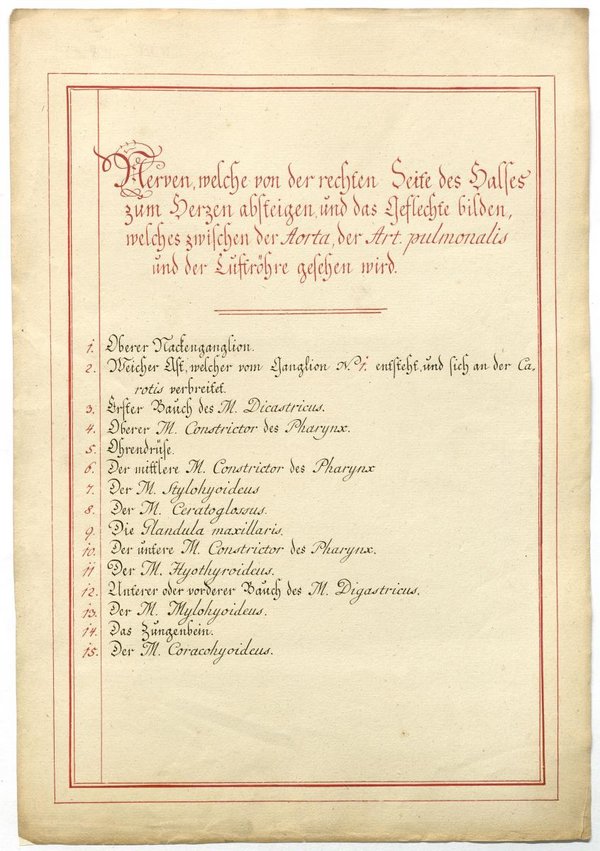 Nerven, welche von der rechten Seite des Halses
zum Herzen absteigen, und das Geflechte bilden,
welches zwischen der Aorta, der Art. pulmonalis
und der Luftröhre gesehen wird.
1. Oberer Nackenganglion.
2. Weicher Ast, welcher vom Ganglion N.º 1. entsteht, und sich an der Ca-
rotis verbreitet.
3. Erster Bauch des M. Dicastricus.
4. Oberer M. Constrictor des Pharynx.
5. Ohrendrüse.
6. Der mittlere M. Constrictor des Pharynx
7. Der M. Stylohyoideus
8. Der M. Ceratoglossus.
9. Die Glandula maxillaris.
10. Der untere M. Constrictor des Pharynx.
11 Der M. Hyothyroideus.
12. Unterer oder vorderer Bauch des M. Digastricus.
13. Der M. Mylohyoideus.
14. Das Zungenbein.
15. Der M. Coracohyoideus.